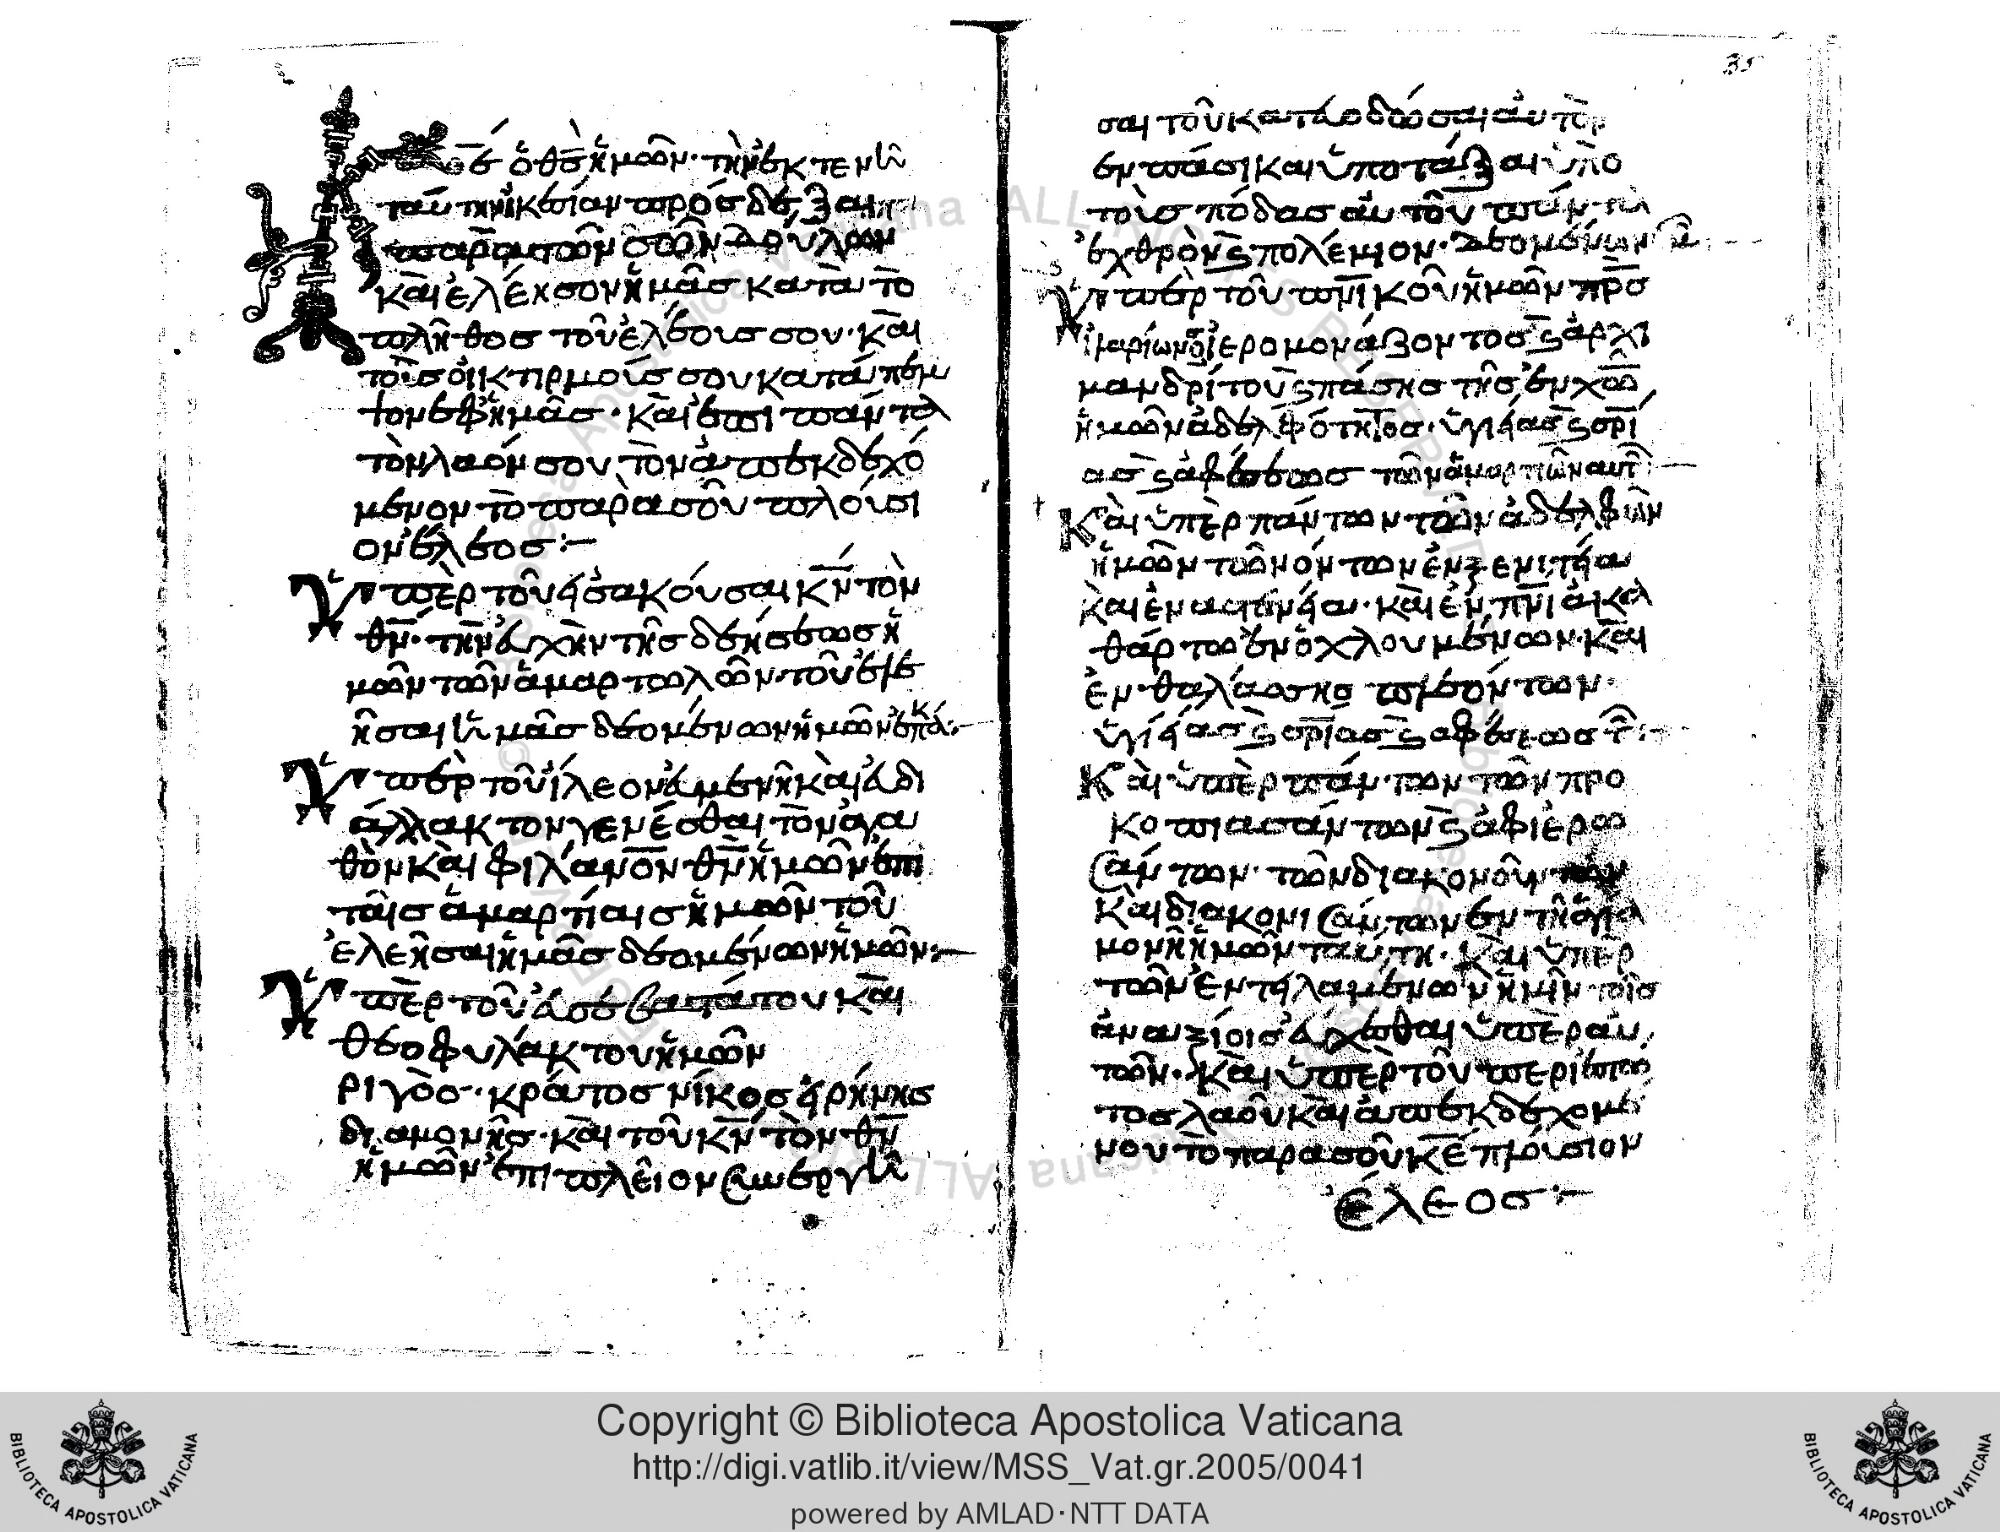 Κε ὁ θς ἡμῶν· τὴν ἐκτενῆ
ταύτην ἱκεσίαν πρόσδεξαι
παρὰ τῶν σῶν δούλων
καὶ ἐλέησον ἡμᾶς κατὰ τὸ
πλῆθος τοῦ ἐλέους σου· καὶ
τοὺς οἰκτιρμούς σου κατάπεμ
ἡμᾶς· καὶ ἐπὶ πάντα
τὸν λαόν σου τὸν ἀπεκδεχό
μενον τὸ παρὰ σοῦ πλούσι
ον ἔλεος:–
Ὑπὲρ τοῦ εἰσακοῦσαι κν τὸν
θν· τὴν εὐχὴν τῆς δεήσεως ἡ
μῶν τῶν ἁμαρτωλῶν· τοῦ ἐλε
ῆσαι ἡμᾶς δεομένων ἡμῶν ἐπακ
Ὑπὲρ τοῦ ἵλεον εὐμενῆ καὶ εὐδι
άλλακτον γενέσθαι τὸν ἀγα
θὸν καὶ φιλανον θν ἡμῶν ἐπὶ
ταῖς ἁμαρτίαις ἡμῶν τοῦ
ἐλεῆσαι ἡμᾶς δεομένων ἡμῶν:–
Ὑπὲρ τοῦ εὐσεβεστάτου καὶ
θεοφυλάκτου ἡμῶν
ριγὸς· κράτος νίκος εἰρήνης
διαμονῆς· καὶ τοῦ κν τὸν θν
ἡμῶν ἐπιπλεῖον συνεργῆ
35
σαι τοῦ κατευοδῶσαι αὐτὸν
ἐν πᾶσι καὶ ὑποτάξαι ὑπὸ
τοὺς πόδας αὐτοῦ πάντα
ἐχθρὸν ϗ πολέμιον· δεομένων
Ὑπὲρ τοῦ πνικοῦ ἡμῶν πρς
ἱερομονάζοντος ϗ ἀρχι
μανδρίτου ϗ πάσης τῆς ἐν χω
ἡμῶν ἀδελφότητος· ὑγιείας ϗ σρί
ας ϗ ἀφέσεως τῶν ἁμαρτιῶν αυτ
Καὶ ὑπὲρ πάντων τῶν ἀδελφῶν
ἡμῶν τῶν ὄντων ἐν ξενιτεία
καὶ ἐν ἀσθενεία· καὶ ἐν πνι ἀκα
θάρτω ἐνοχλουμένων· καὶ
ἐν θαλάσσης πλεόντων·
ὑγιείας ϗ σρίας ϗ ἀφέσεως
Καὶ ὑπὲρ πάντων τῶν προ
κοπιασάντων ϗ ἀφιερω
σάντων· τῶν διακονούντων
καὶ διακονισάντων ἐν τῆ ἁγία
μονῆ ἡμῶν ταύτη· καὶ ὑπὲρ
τῶν ἐντειλαμένων ἡμῖν τοῖς
ἀναξίοις εὔχεσθαι ὑπὲρ αὐ
τῶν· καὶ ὑπὲρ τοῦ περιεστῶ
τος λαοῦ καὶ ἀπεκδεχομέ
νου τὸ παρὰ σοῦ κε πλούσιον
ἔλεος:–
Copyright © Biblioteca Apostolica Vaticana
http://digi.vatlib.it/view/MSS_Vat.gr.2005/0041
powered by AMLAD·NTT DATA
BIBLIOTECA APOSTOLICA VATICANA
BIBLIOTECA APOSTOLICA VATICANA